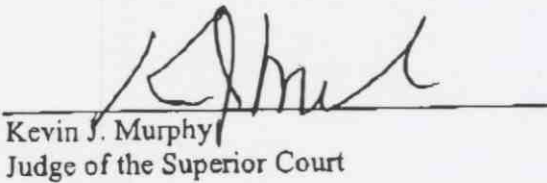 Kevin J. Murphy
Judge of the Superior Court